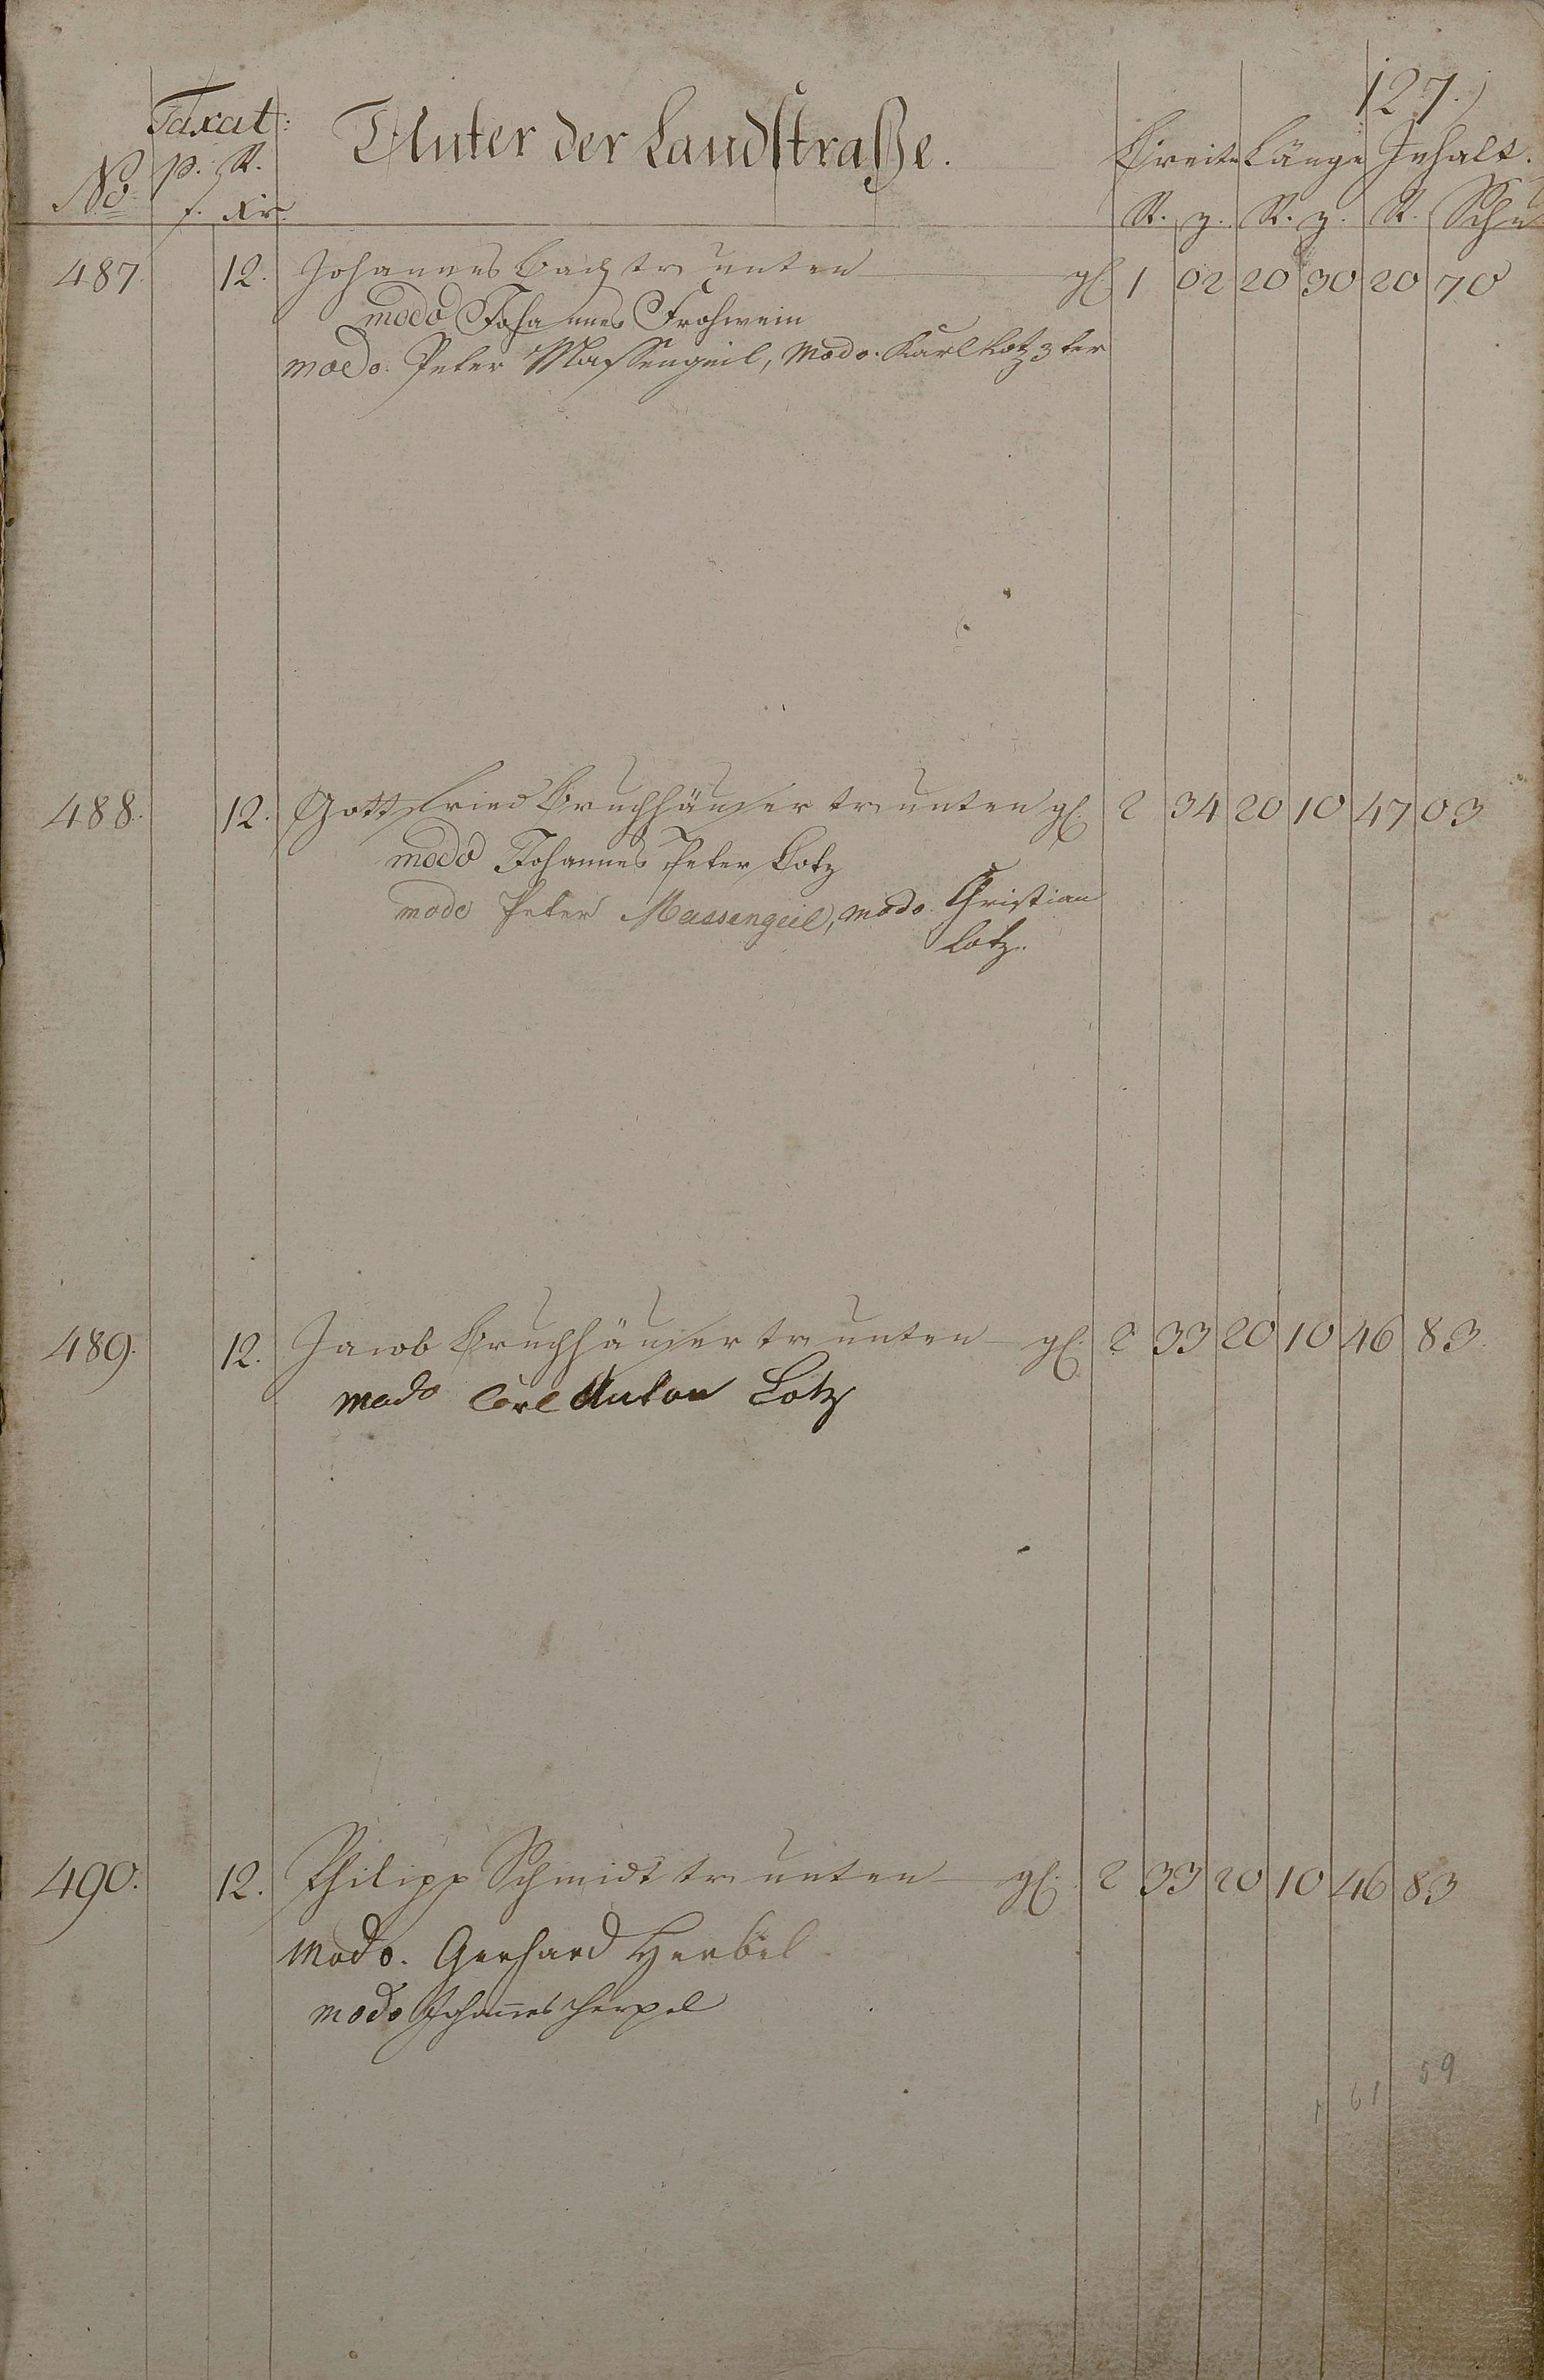 127.
Taxat: Unter der Landstraße. Breite Länge Inhalt.
No p. R. R. z. R. z. R. Schu
f. xr.
487. 12. Johannes Bach tr unten gl. 1 02 20 30 20 70
modo Johannes Frohwein
modo. Peter Massengeil, modo. Karl Lotz 3ter
488. 12. Gottfried Bruchhäuser tr unten gl. 2 34 20 10 47 03
modo Johannes Peter Lotz
modo Peter Massengeil, modo Christian
Lotz.
489. 12. Jacob Bruchhäuser tr unten gl. 2 33 20 10 46 83
modo Carl Anton Lotz
490. 12. Philipp Schmidt tr unten gl. 2 33 20 10 46 83
modo. Gerhard Herbel
modo Johannes Herpel
1 61 59